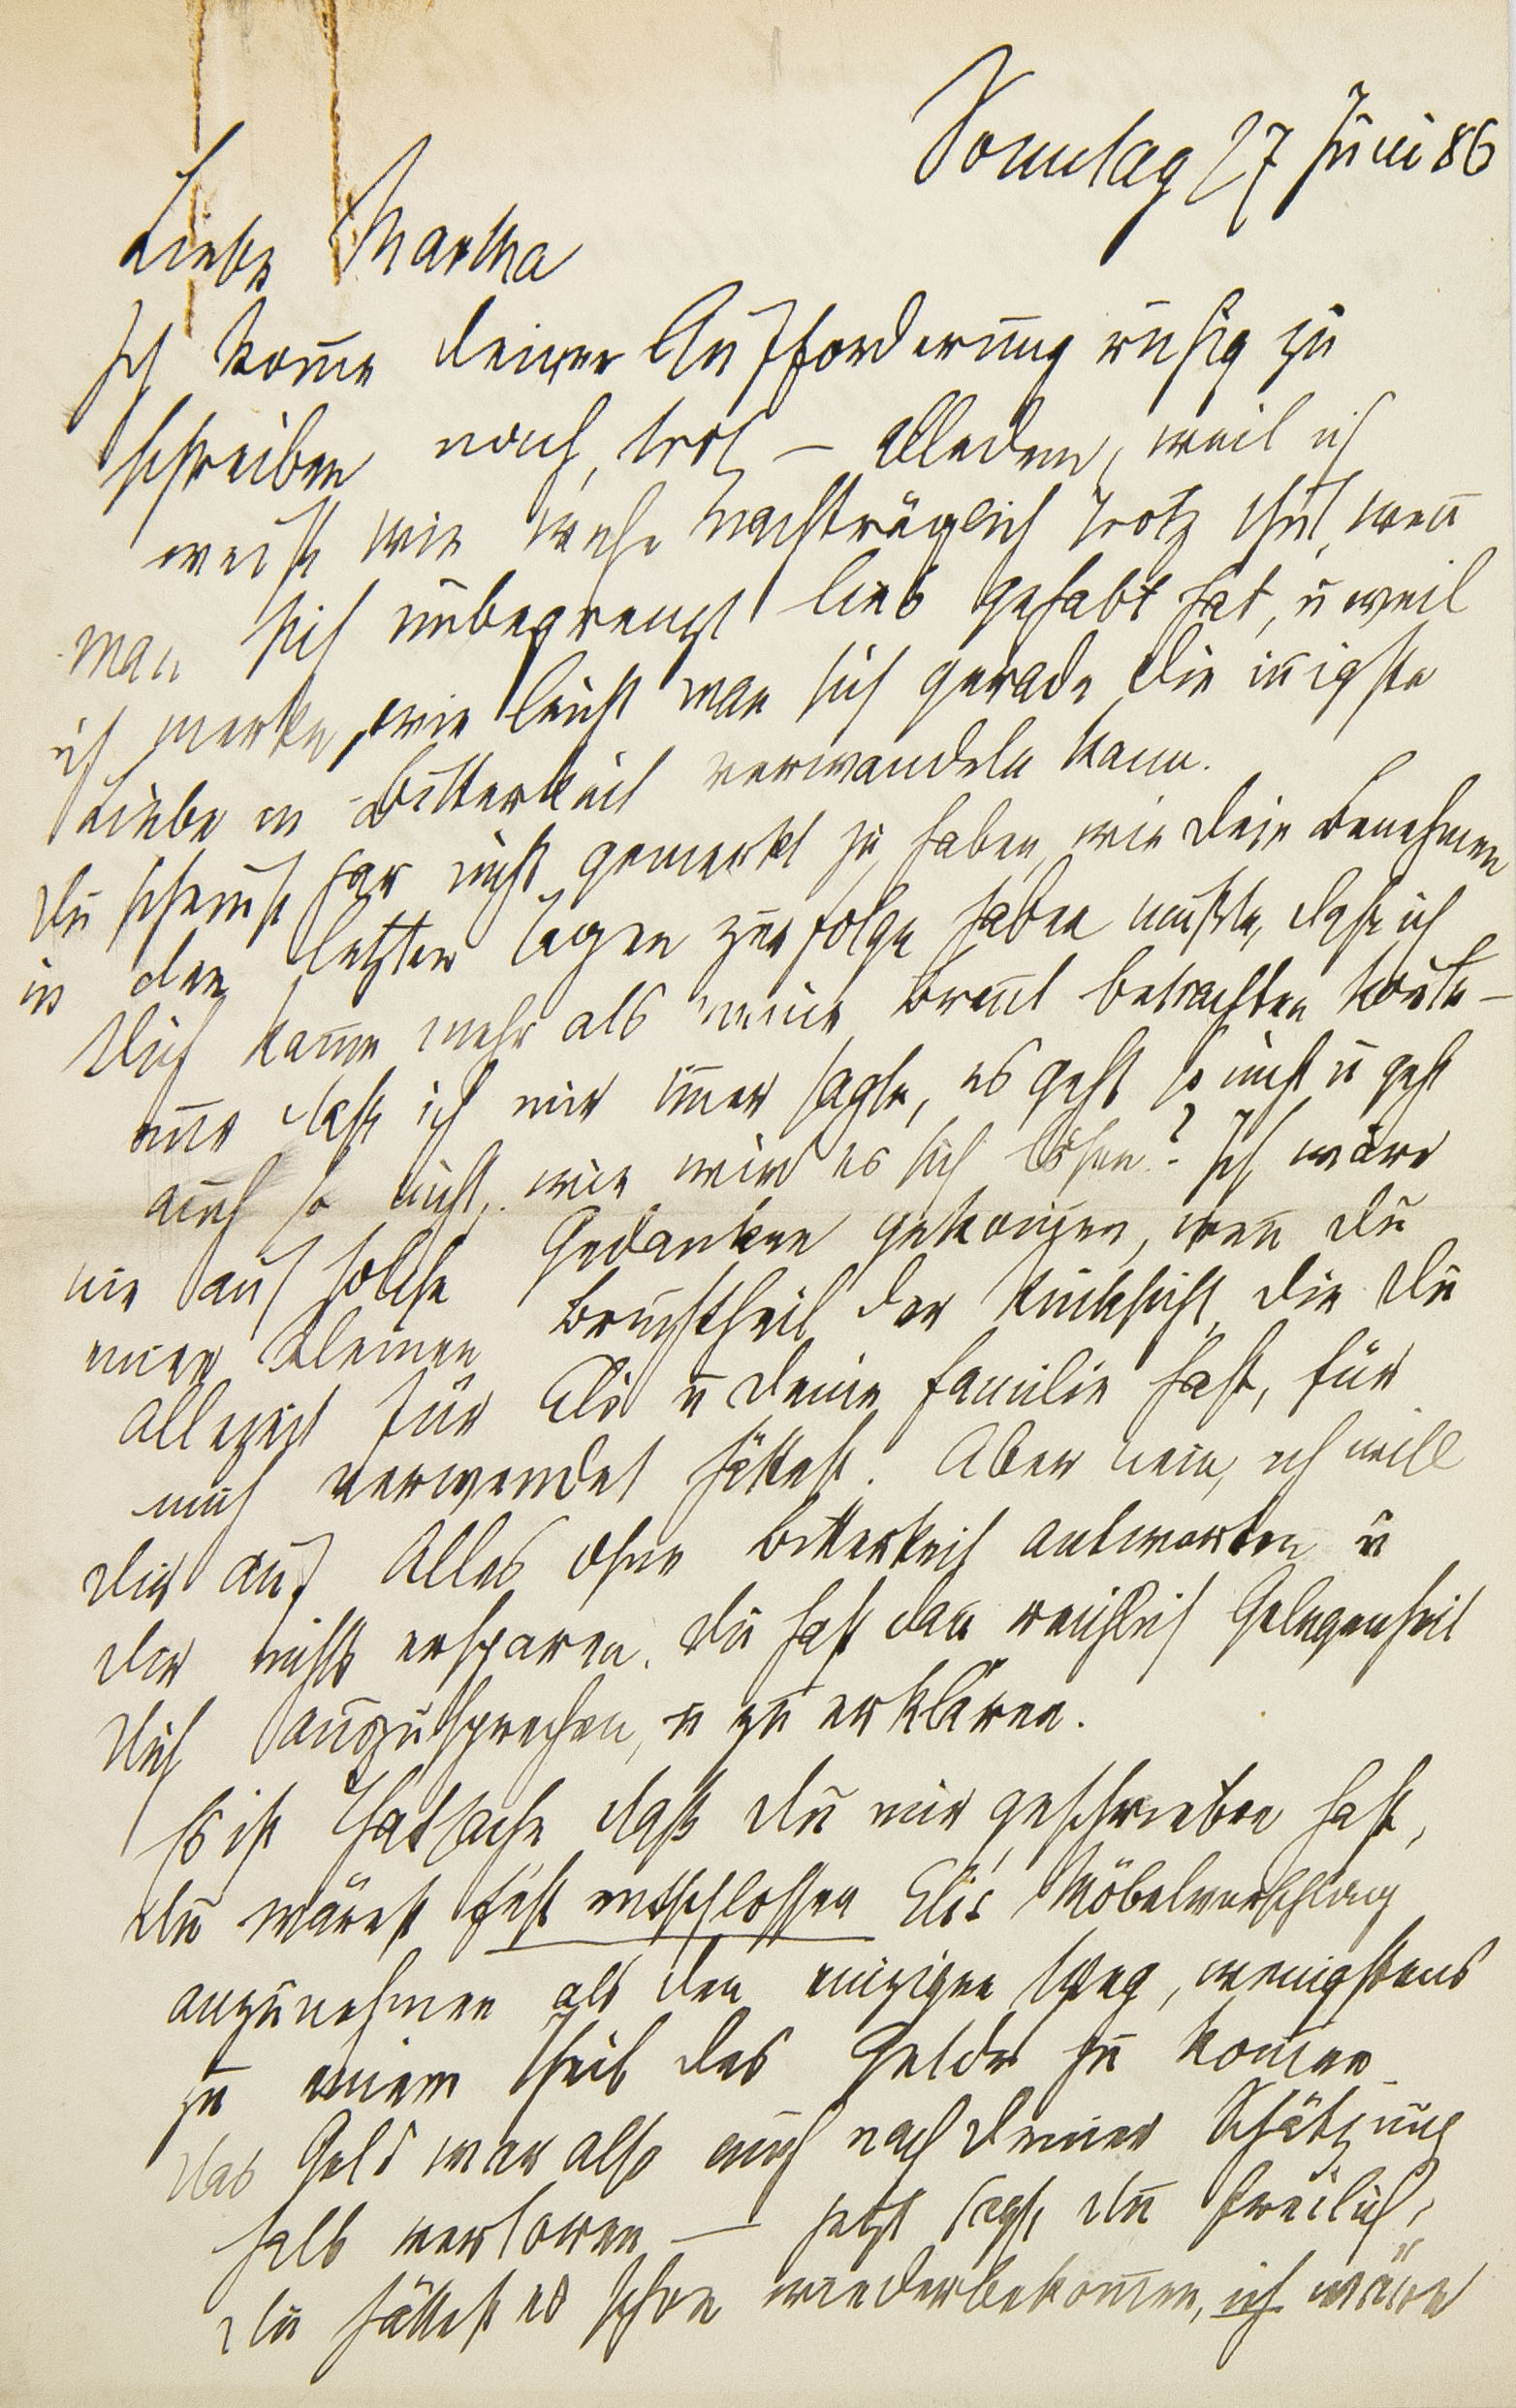 Sonntag 27 Juni 86
Liebe Martha
Ich kom̄e deiner Aufforderung ruhig zu
schreiben nach, trotz – alledem, weil ich
weiß wie wehe nachträglich Trotz thut, wen̄
man sich unbegrenzt lieb gehabt hat, u weil
ich merke, wie leicht man sich gerade die in̄igste
Liebe in Bitterkeit verwandeln kann.
Du scheinst gar nicht gemerkt zu haben, wie dein Benehmen
in den letzten Tagen zur Folge haben mußte, daß ich
Dich kaum mehr als meine Braut betrachten kon̄te –
nur daß ich mir im̄er sagte, es geht so nicht u geht
auch so nicht, wie wird es sich lösen? Ich wäre
nie auf solche Gedanken gekom̄en, wen̄ Du
einen kleinen Bruchtheil der Rücksicht, die Du
allezeit für Eli u deine Familie hast, für
mich verwendet hättest. Aber nein, ich will
Dir auf Alles ohne Bitterkeit antworten u
Dir nichts ersparen. Du hast dan̄ reichlich Gelegenheit
Dich auszusprechen, u zu erklären.
Es ist Thatsache daß Du mir geschrieben hast,
Du wärest fest entschlossen Eli's Möbelvorschlag
anzunehmen als den einzigen Weg, wenigstens
zu einem Theil des Geldes zu kom̄en
Das Geld war also auch nach Deiner Schätzung
halb verloren – jetzt sagst Du freilich,
Du hättest es schon wiederbekom̄en, ich wäre